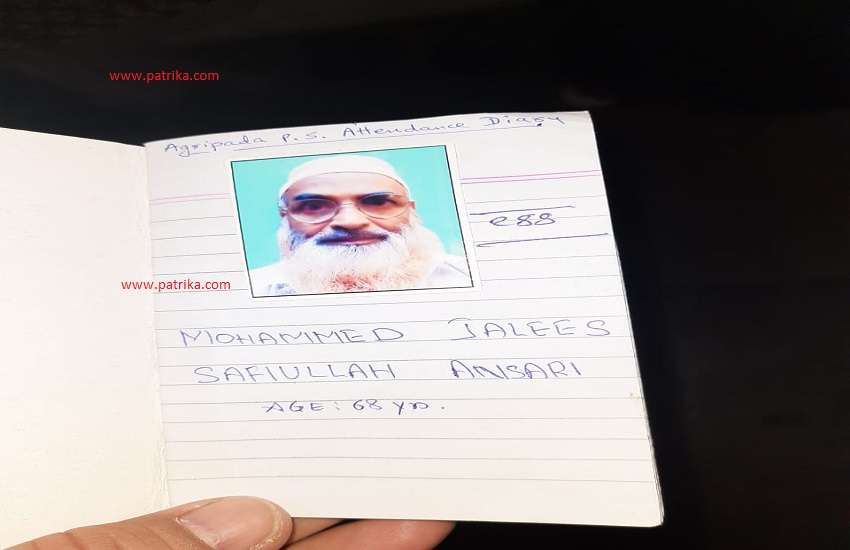 www.patrika.com
Agripada P.S. Attendance Diary
www.patrika.com
MOHAMMED JALEES
SAFIULLAH ANSARI
AGE: 68 yrs.